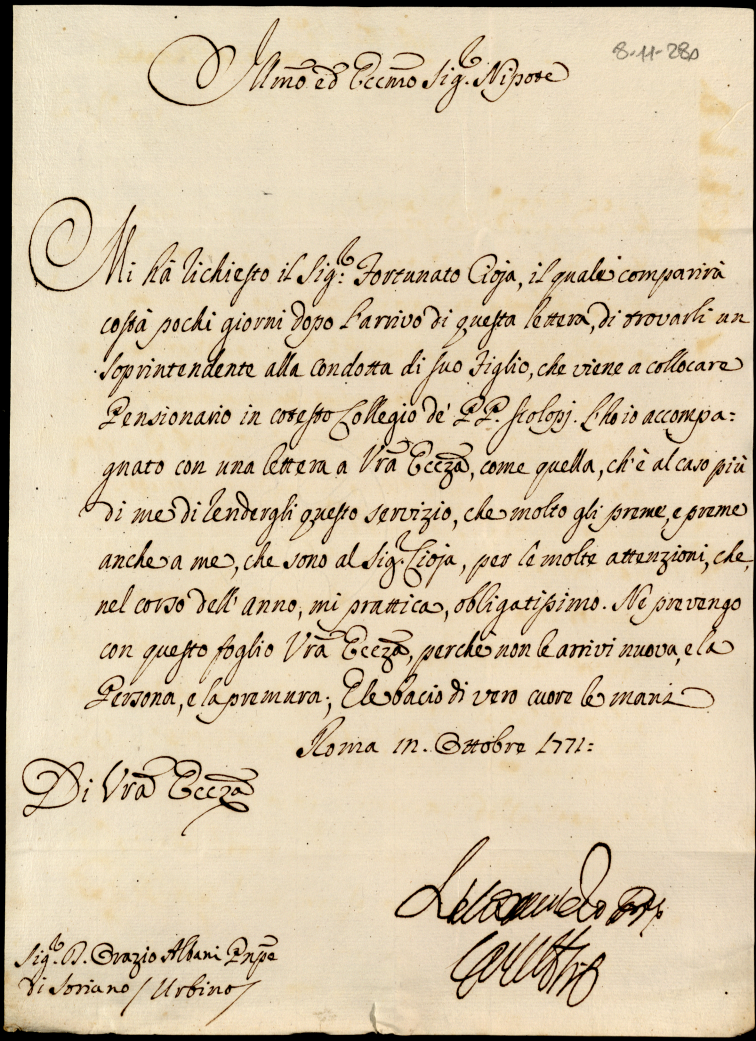 8-11-280
Illmo ed Eccmo Sigr. Nipote
Mi hà richiesto il Sigr. Fortunato Cioja, il quale comparirà
costà pochi giorni dopo l'arrivo di questa lettera, di trovarli un
soprintendente alla condotta di suo Figlio, che viene a collocare
Pensionario in cotesto Collegio de' PP. Scolopj. L'ho io accompa=
gnato con una lettera a Vrã Eccza, come quella, ch'è al caso più
di me di rendergli questo servizio, che molto gli preme, e preme
anche a me, che sono al Sigr. Cioja, per le molte attenzioni, che,
nel corso dell'anno, mi prattica, obligatissimo. Ne prevengo
con questo foglio Vrã Eccza, perchè non le arrivi nuova, e la
Persona, e la premura; E le bacio di vero cuore le mani
Roma 12. Ottobre 1771:
Di Vrã Eccza
Sigr. D. Orazio Albani Pnpe
di Soriano / Urbino /